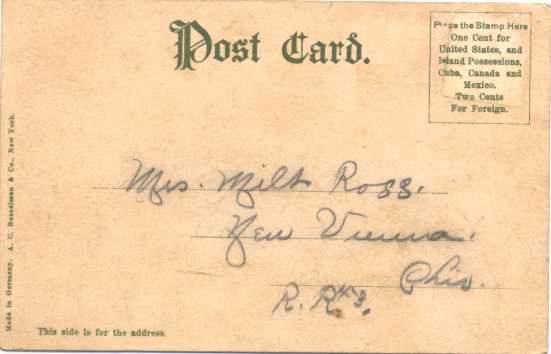 Post Card.
Place the Stamp Here
One Cent for
United States, and
Island Possessions,
Cuba, Canada and
Mexico.
Two Cents
For Foreign.
Mrs. Milt Ross.
New Vienna.
Ohio.
R. R# 3.
This side is for the address.
Made in Germany. A. C. Bosselman & Co., New York.